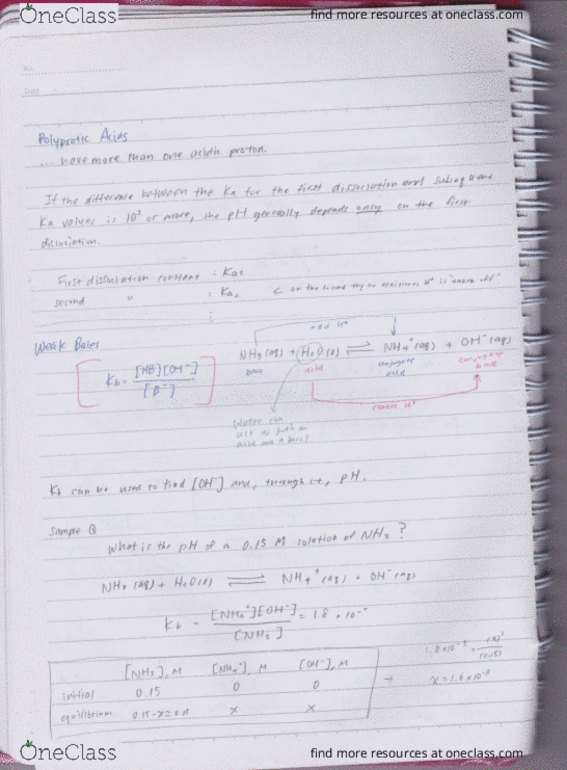 OneClass
find more resources at oneclass.com
No.
Date
Polyprotic Acids
... have more than one acidic proton.
If the difference between the Ka for the first dissociation and subsequent
Ka values is 10³ or more, the pH generally depends only on the first
dissociation.
First dissociation constant : Ka₁
second " : Ka₂ < on the second
:
add H⁺
Weak Bases
NH₃(aq) + H₂O(l) ⇌ NH₄⁺(aq) + OH⁻(aq)
base acid conjugate acid conjugate base
Kb = [HB][OH⁻] / [B⁻]
remove H⁺
Water can
act as both an
acid and a base!
Kb can be used to find [OH⁻] and, through it, pH.
Sample Q
What is the pH of a 0.15 M solution of NH₃?
NH₃ (aq) + H₂O(l) ⇌ NH₄⁺(aq) + OH⁻(aq)
Kb = [NH₄⁺][OH⁻] / [NH₃] = 1.8 × 10⁻⁵
[NH₃], M [NH₄⁺], M [OH⁻], M
initial 0.15 0 0
equilibrium 0.15-x x x
→ 1.8×10⁻⁵ = (x)² / (0.15)
x = 1.6×10⁻³
OneClass
find more resources at oneclass.com